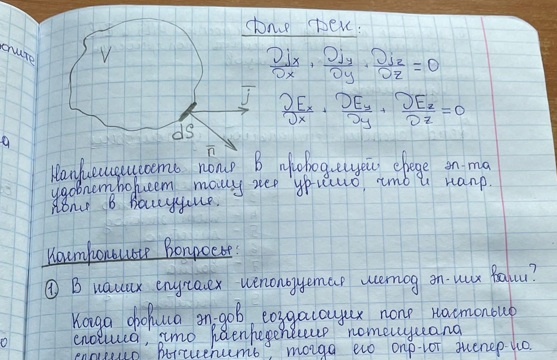 Для ДСК:
V
∂jx/∂x + ∂jy/∂y + ∂jz/∂z = 0
j
∂Ex/∂x + ∂Ey/∂y + ∂Ez/∂z = 0
dS
n
Напряженность поля в проводящей среде эл-та
удовлетворяет тому же ур-нию, что и напр.
поля в вакууме.
Контрольные вопросы:
① В каких случаях используется метод эл-них ванн?
Когда форма эл-дов создающих поля настолько
сложна, что распределение потенциала
сложно вычислить, тогда его опр-ют экспер-но.